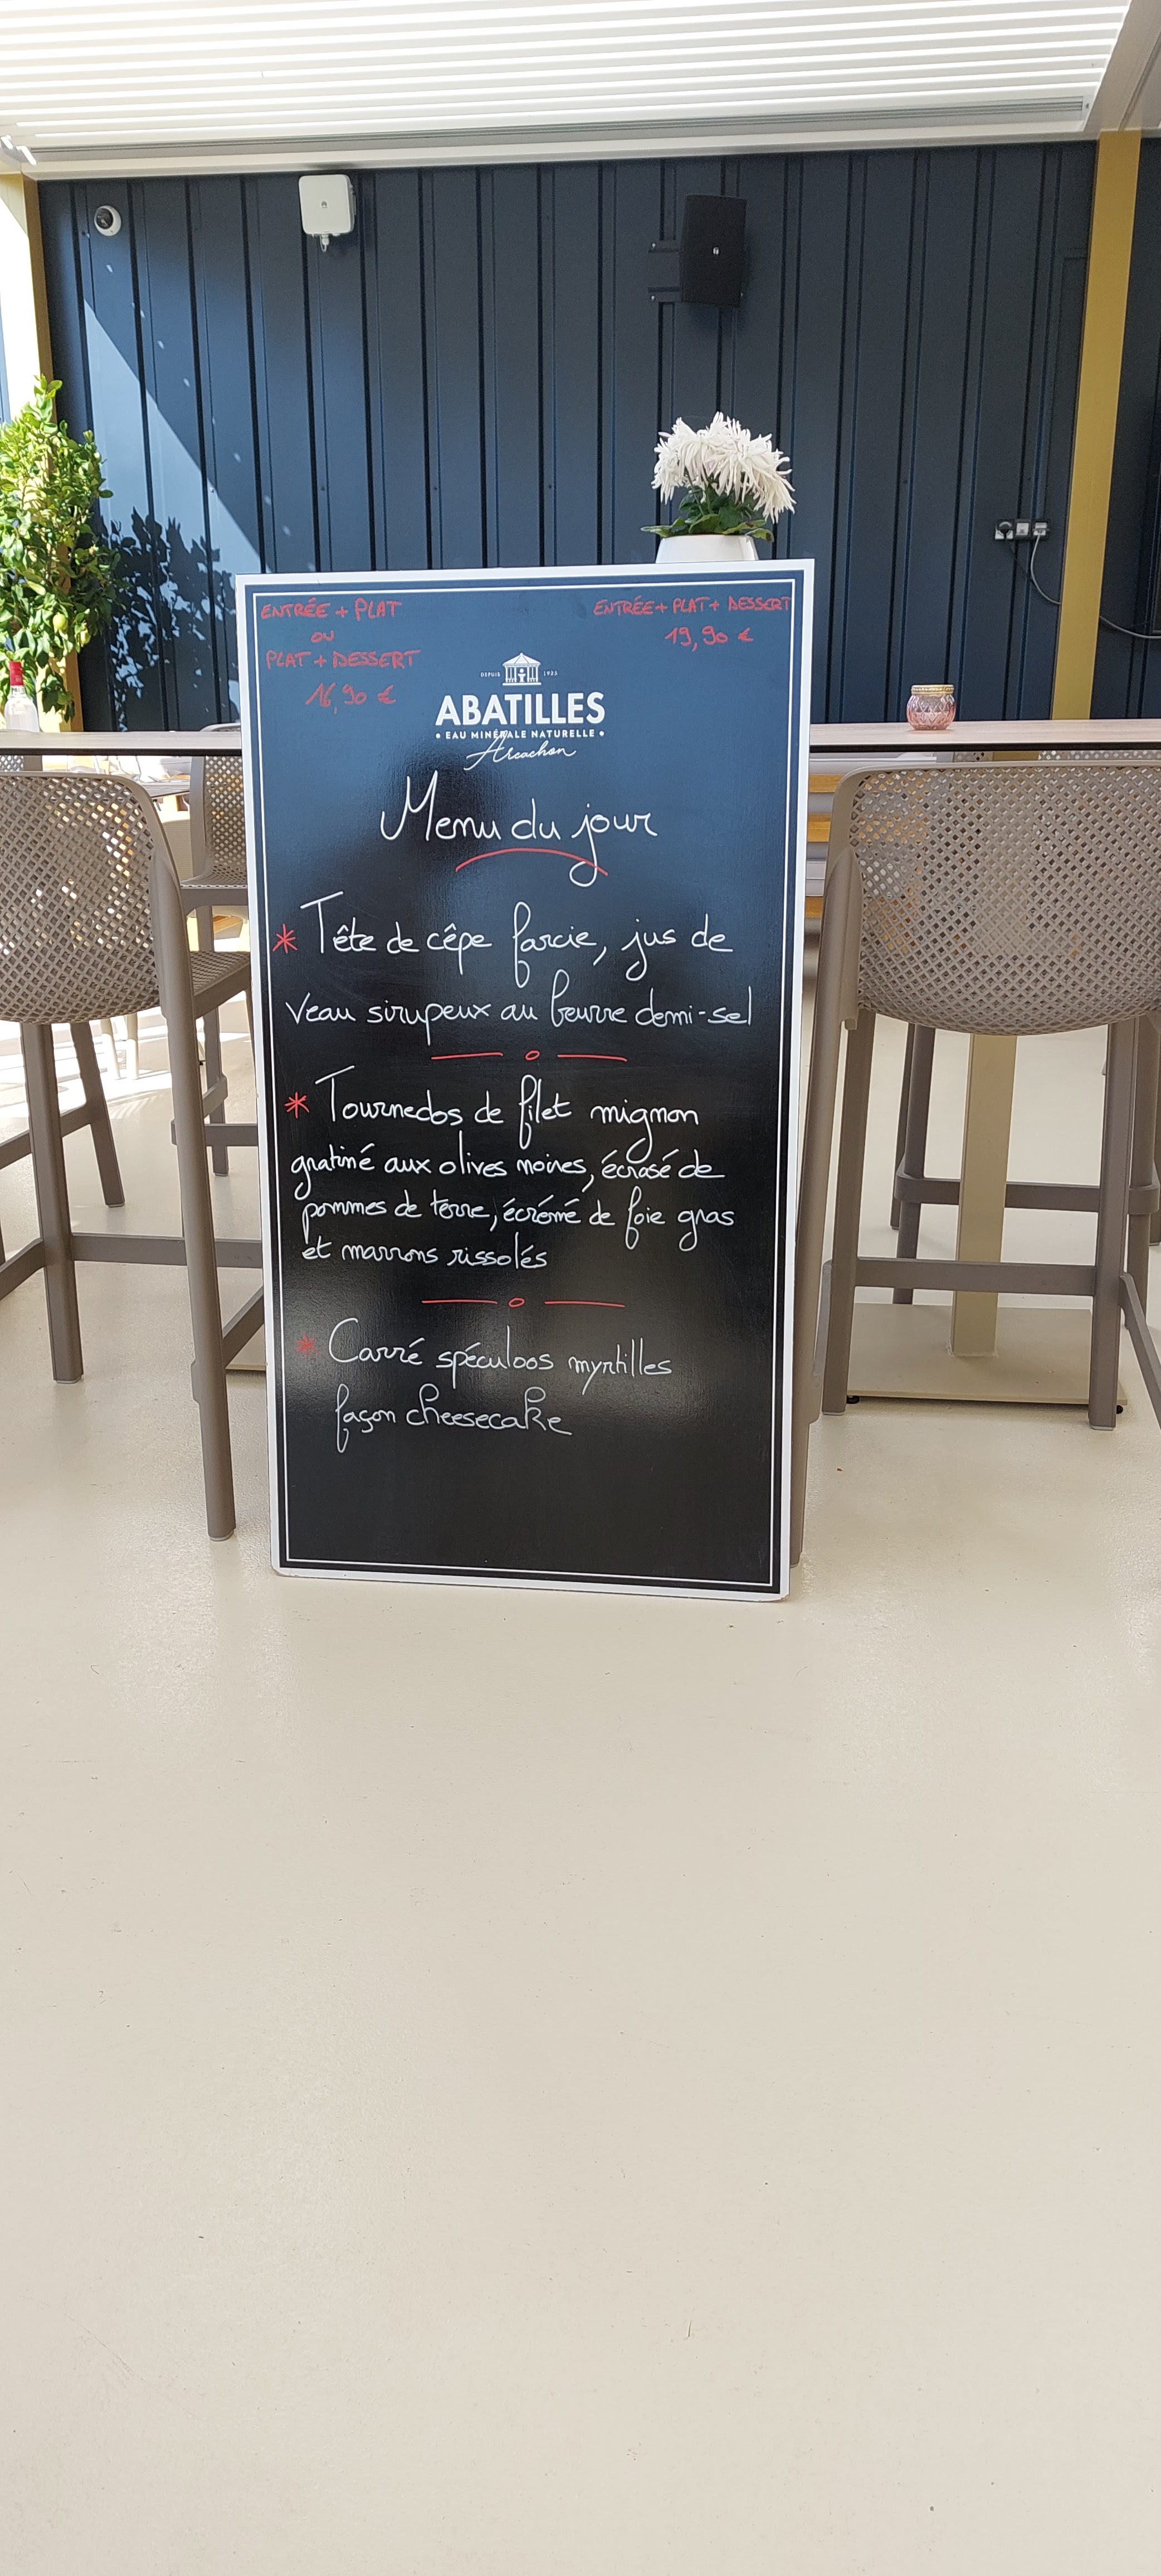 ENTRÉE + PLAT
OU
PLAT + DESSERT
16,90 €
ENTRÉE + PLAT + DESSERT
19,90 €
DEPUIS 1925
ABATILLES
• EAU MINÉRALE NATURELLE •
Arcachon
Menu du jour
* Tête de cêpe farcie, jus de
veau sirupeux au beurre demi-sel
* Tournedos de filet mignon
gratiné aux olives noires, écrasé de
pommes de terre, écrémé de foie gras
et marrons rissolés
* Carré spéculoos myrtilles
façon cheesecake